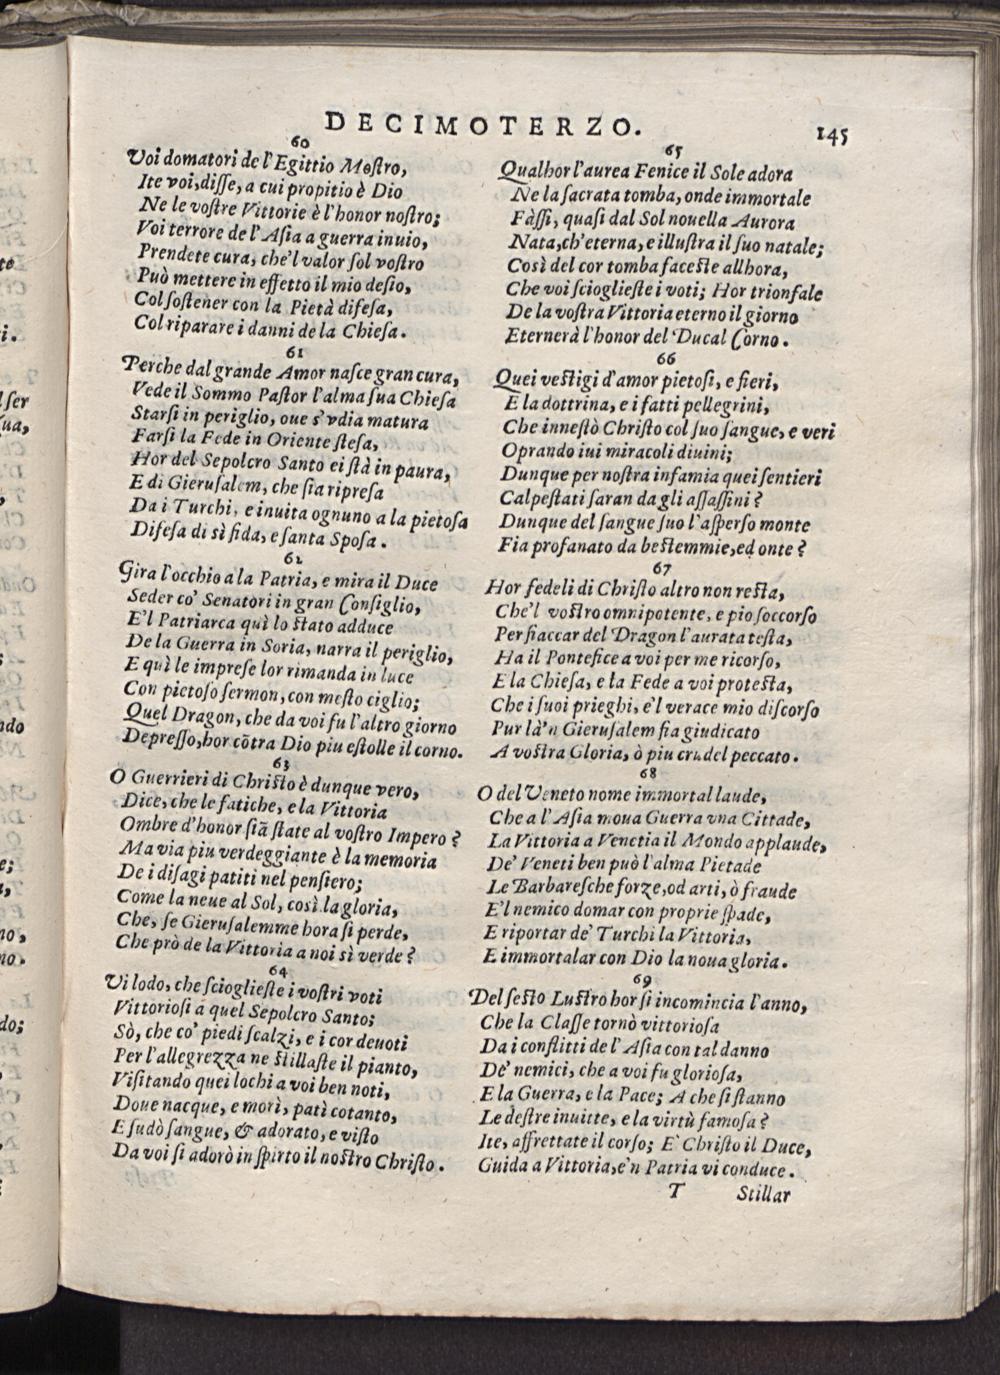 DECIMOTERZO. 145
60
Voi domatori de l'Egittio Mostro,
Ite voi, disse, a cui propitio è Dio
Ne le vostre Vittorie è l'honor nostro;
Voi terrore de l'Asia a guerra inuio,
Prendete cura, che'l valor sol vostro
Può mettere in effetto il mio desio,
Col sostener con la Pietà difesa,
Col riparare i danni de la Chiesa.
61
Perche dal grande Amor nasce gran cura,
Vede il Sommo Pastor l'alma sua Chiesa
Starsi in periglio, oue s'vdia matura
Farsi la Fede in Oriente stesa,
Hor del Sepolcro Santo ei stà in paura,
E di Gierusalem, che sia ripresa
Da i Turchi, e inuita ognuno a la pietosa
Difesa di sì fida, e santa Sposa.
62
Gira l'occhio a la Patria, e mira il Duce
Seder co' Senatori in gran Consiglio,
E'l Patriarca quì lo stato adduce
De la Guerra in Soria, narra il periglio,
E quì le imprese lor rimanda in luce
Con pietoso sermon, con mesto ciglio;
Quel Dragon, che da voi fu l'altro giorno
Depresso, hor cõtra Dio piu estolle il corno.
63
O Guerrieri di Christo è dunque vero,
Dice, che le fatiche, e la Vittoria
Ombre d'honor siã state al vostro Impero?
Ma via piu verdeggiante è la memoria
De i disagi patiti nel pensiero;
Come la neue al Sol, così la gloria,
Che, se Gierusalemme hora si perde,
Che prò de la Vittoria a noi sì verde?
64
Vi lodo, che scioglieste i vostri voti
Vittoriosi a quel Sepolcro Santo;
Sò, che co' piedi scalzi, e i cor deuoti
Per l'allegrezza ne stillaste il pianto,
Visitando quei lochi a voi ben noti,
Doue nacque, e morì, patì cotanto,
E sudò sangue, & adorato, e visto
Da voi si adorò in spirto il nostro Christo.
65
Qualhor l'aurea Fenice il Sole adora
Ne la sacrata tomba, onde immortale
Fàssi, quasi dal Sol nouella Aurora
Nata, ch'eterna, e illustra il suo natale;
Così del cor tomba faceste allhora,
Che voi scioglieste i voti; Hor trionfale
De la vostra Vittoria eterno il giorno
Eternerà l'honor del Ducal Corno.
66
Quei vestigi d'amor pietosi, e fieri,
E la dottrina, e i fatti pellegrini,
Che innestò Christo col suo sangue, e veri
Oprando iui miracoli diuini;
Dunque per nostra infamia quei sentieri
Calpestati saran da gli assassini?
Dunque del sangue suo l'asperso monte
Fia profanato da bestemmie, ed onte?
67
Hor fedeli di Christo altro non resta,
Che'l vostro omnipotente, e pio soccorso
Per fiaccar del Dragon l'aurata testa,
Ha il Pontefice a voi per me ricorso,
E la Chiesa, e la Fede a voi protesta,
Che i suoi prieghi, e'l verace mio discorso
Pur là'n Gierusalem fia giudicato
A vostra Gloria, ò piu crudel peccato.
68
O del Veneto nome immortal laude,
Che a l'Asia moua Guerra vna Cittade,
La Vittoria a Venetia il Mondo applaude,
De' Veneti ben può l'alma Pietade
Le Barbaresche forze, od arti, ò fraude
E'l nemico domar con proprie spade,
E riportar de' Turchi la Vittoria,
E immortalar con Dio la noua gloria.
69
Del sesto Lustro hor si incomincia l'anno,
Che la Classe tornò vittoriosa
Da i conflitti de l'Asia con tal danno
De' nemici, che a voi fu gloriosa,
E la Guerra, e la Pace; A che si stanno
Le destre inuitte, e la virtù famosa?
Ite, affrettate il corso; E' Christo il Duce,
Guida a Vittoria, e'n Patria vi conduce.
T Stillar